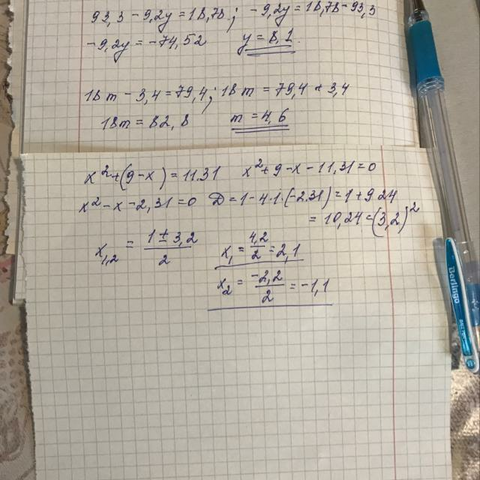 93,3 - 9,2y = 18,78; -9,2y = 18,78 - 93,3
-9,2y = -74,52 y = 8,1
18m - 3,4 = 79,4; 18m = 79,4 + 3,4
18m = 82,8 m = 4,6
x²+(9-x) = 11.31 x²+9-x-11,31=0
x²-x-2,31=0 D=1-4·1·(-2.31)=1+9 24
= 10,24=(3,2)²
x₁,₂ = (1±3,2)/2 x₁ = 4,2/2 = 2,1
x₂ = -2,2/2 = -1,1
Berlingo